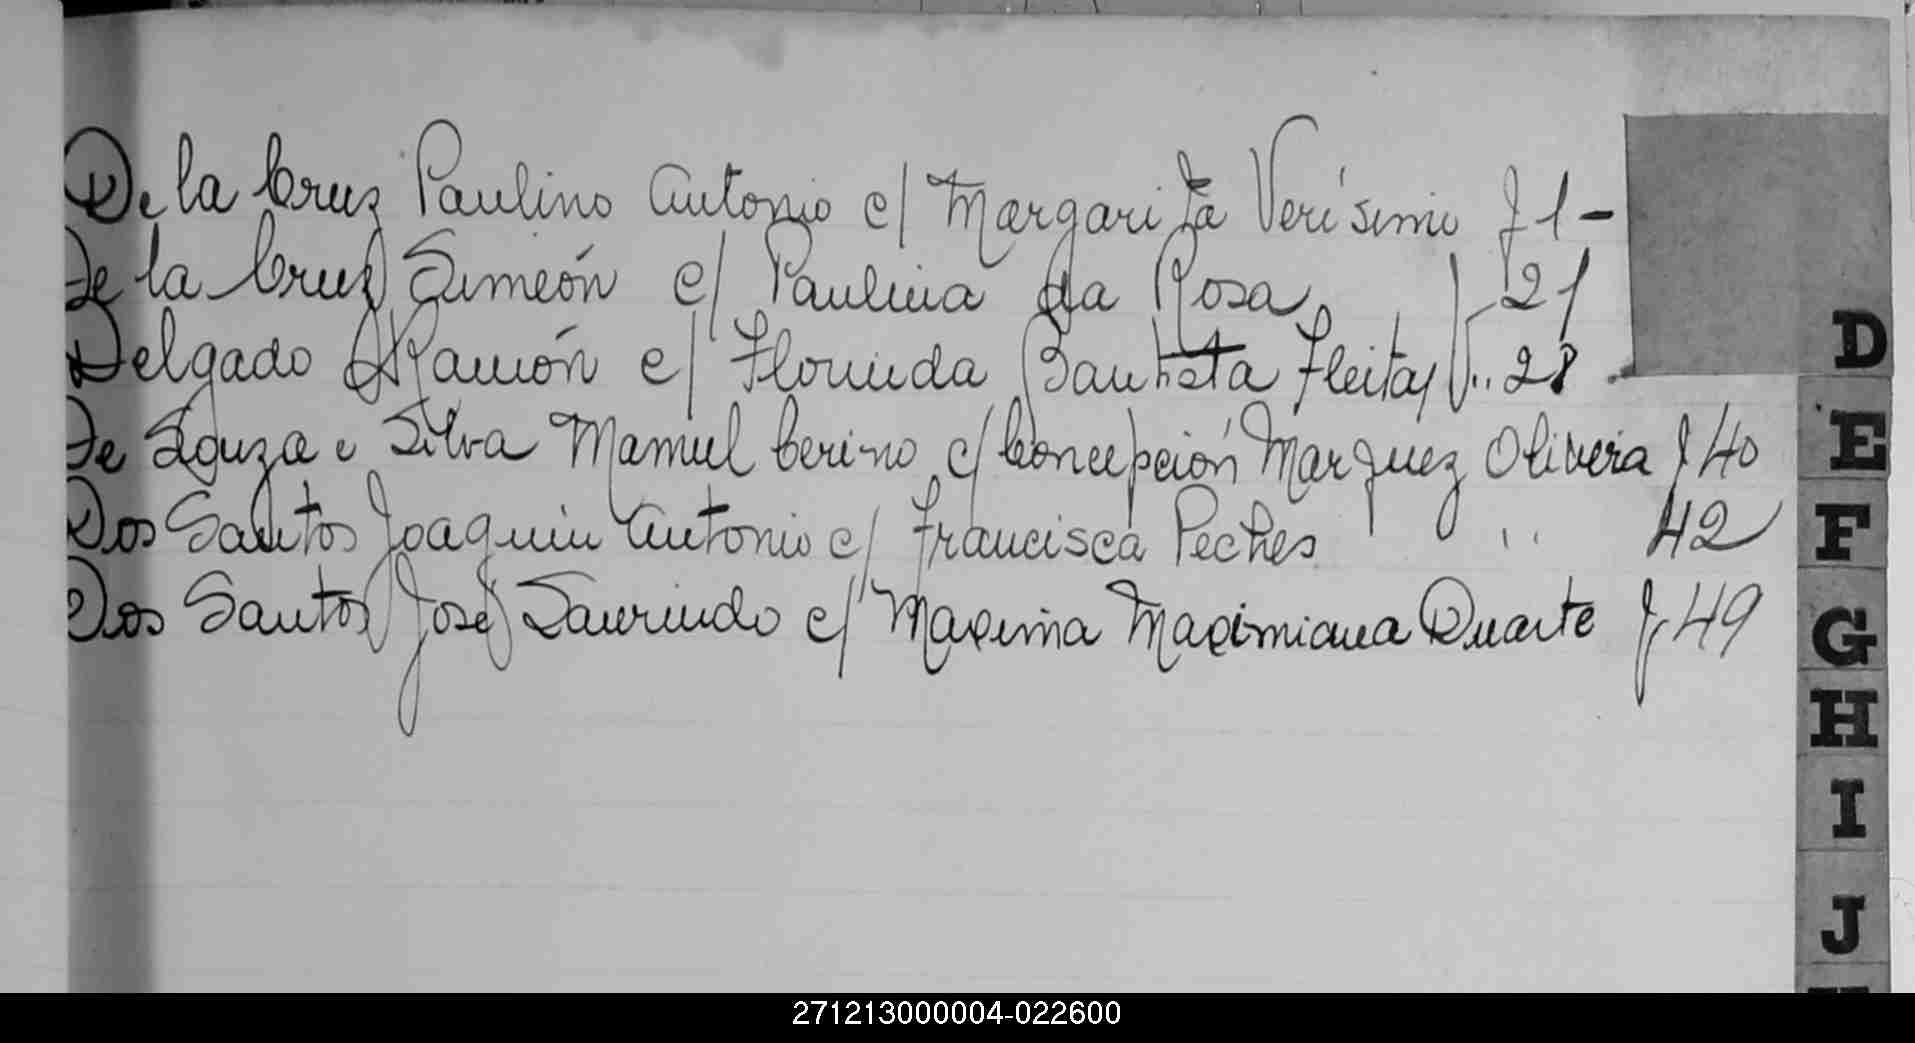 De la Cruz Paulino Antonio c/ Margarita Verísimo f 1-
De la Cruz Simeón c/ Paulina da Rosa 21
Delgado Ramón c/ Florinda Bautista Fleitas " 28
De Souza e Silva Manuel Cerino c/ Concepción Marquez Olivera f 40
Dos Santos Joaquin Antonio c/ Francisca Peches " 42
Dos Santos José Laurindo c/ Maxima Maximiana Duarte f 49
D
E
F
G
H
I
J
271213000004-022600